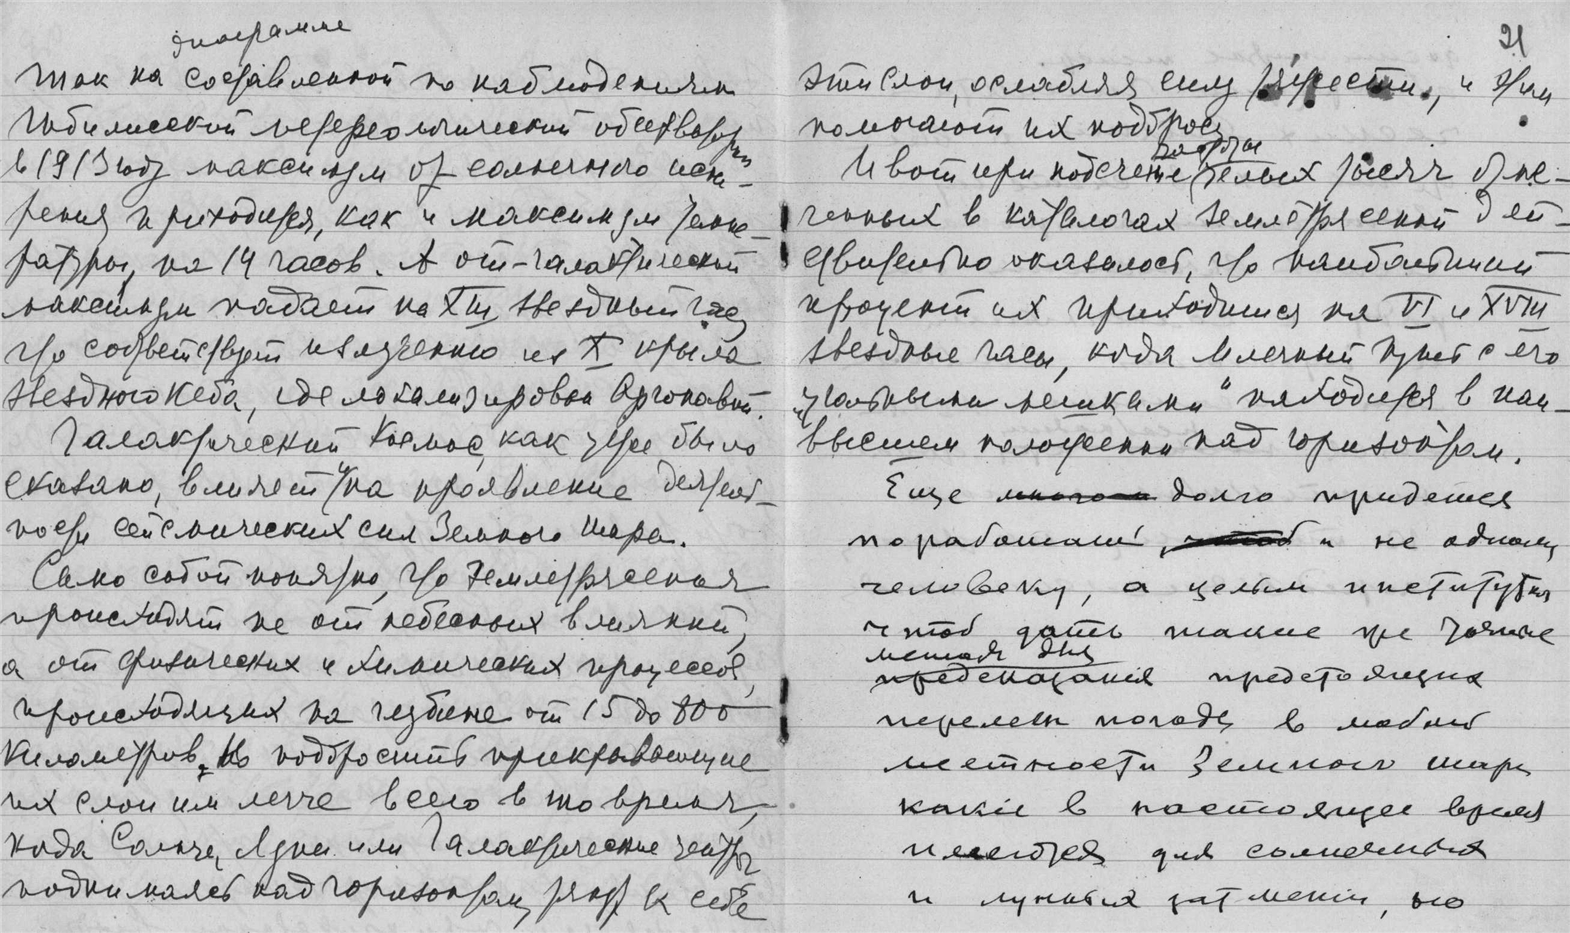 диаграмме
Так на составленной по наблюдениям
Тбилисской метереологической обсерватории
в 1913 году максимум от солнечного иску-
рения приходится, как и максимум темпе-
ратуры, на 14 часов. А от-галактический
максимум падает на XIII звездный час,
что соответствует излучению из X крыла
звездного неба, где локализирован Аргонавт.
Галактический Космос, как уже было
сказано, влияет и на проявление деятель-
ности сейсмических сил Земного Шара.
Само собой понятно, что землетрясения
происходят не от небесных влияний,
а от физических и химических процессов,
происходящих на глубине от 15 до 800
километров. Но подбросить прикрывающие
их слои им легче всего в то время,
когда Солнце, Луна или Галактические центры
поднимаясь над горизонтом, тянут к себе
21
эти слои, ослабляя силу тяжести, и этим
помогают их подбросу.
И вот при подсчете целых тысяч отме-
ченных в каталогах землетрясений дей-
ствительно оказалось, что наибольший
процент их приходится на VI и XVIII
звездные часы, когда Млечный Путь с его
„угольными мешками“ находится в наи-
высшем положении над горизонтом.
Еще много долго придется
поработать, чтоб и не одному
человеку, а целым институтам
чтоб дать такие же точные
методы для
предсказания предстоящих
перемен погоды в любой
местности Земного шара
какие в настоящее время
имеются для солнечных
и лунных затмений, но